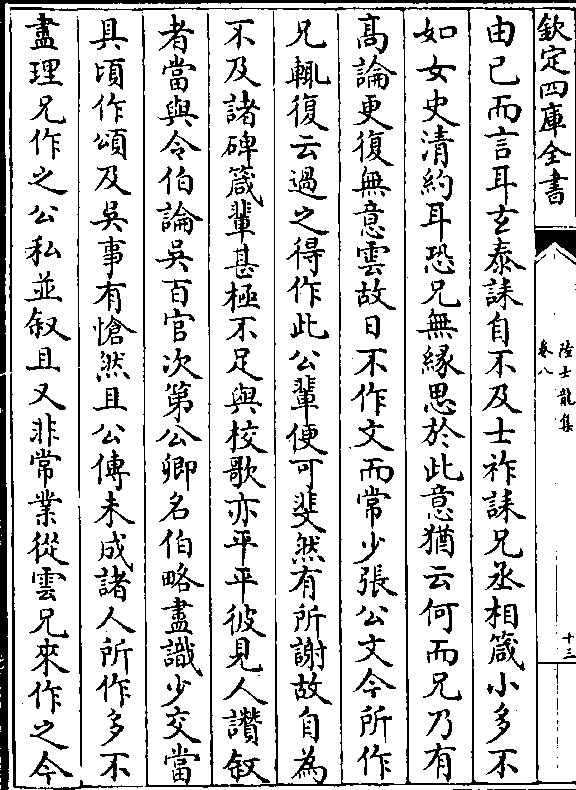 欽定四庫全書
陸士龍集
卷八
十三
由己而言耳玄泰誄自不及士祚誄兄丞相箴小多不
如女史清約耳恐兄無緣思於此意猶云何而兄乃有
髙論更復無意雲故日不作文而常少張公文今所作
兄輒復云過之得作此公輩便可斐然有所謝故自為
不及諸碑箴輩甚極不足與校歌亦平平彼見人讚叙
者當與令伯論吳百官次第公卿名伯略盡識少交當
具頃作頌及吳事有愴然且公傳未成諸人所作多不
盡理兄作之公私並叙且又非常業從雲兄來作之今